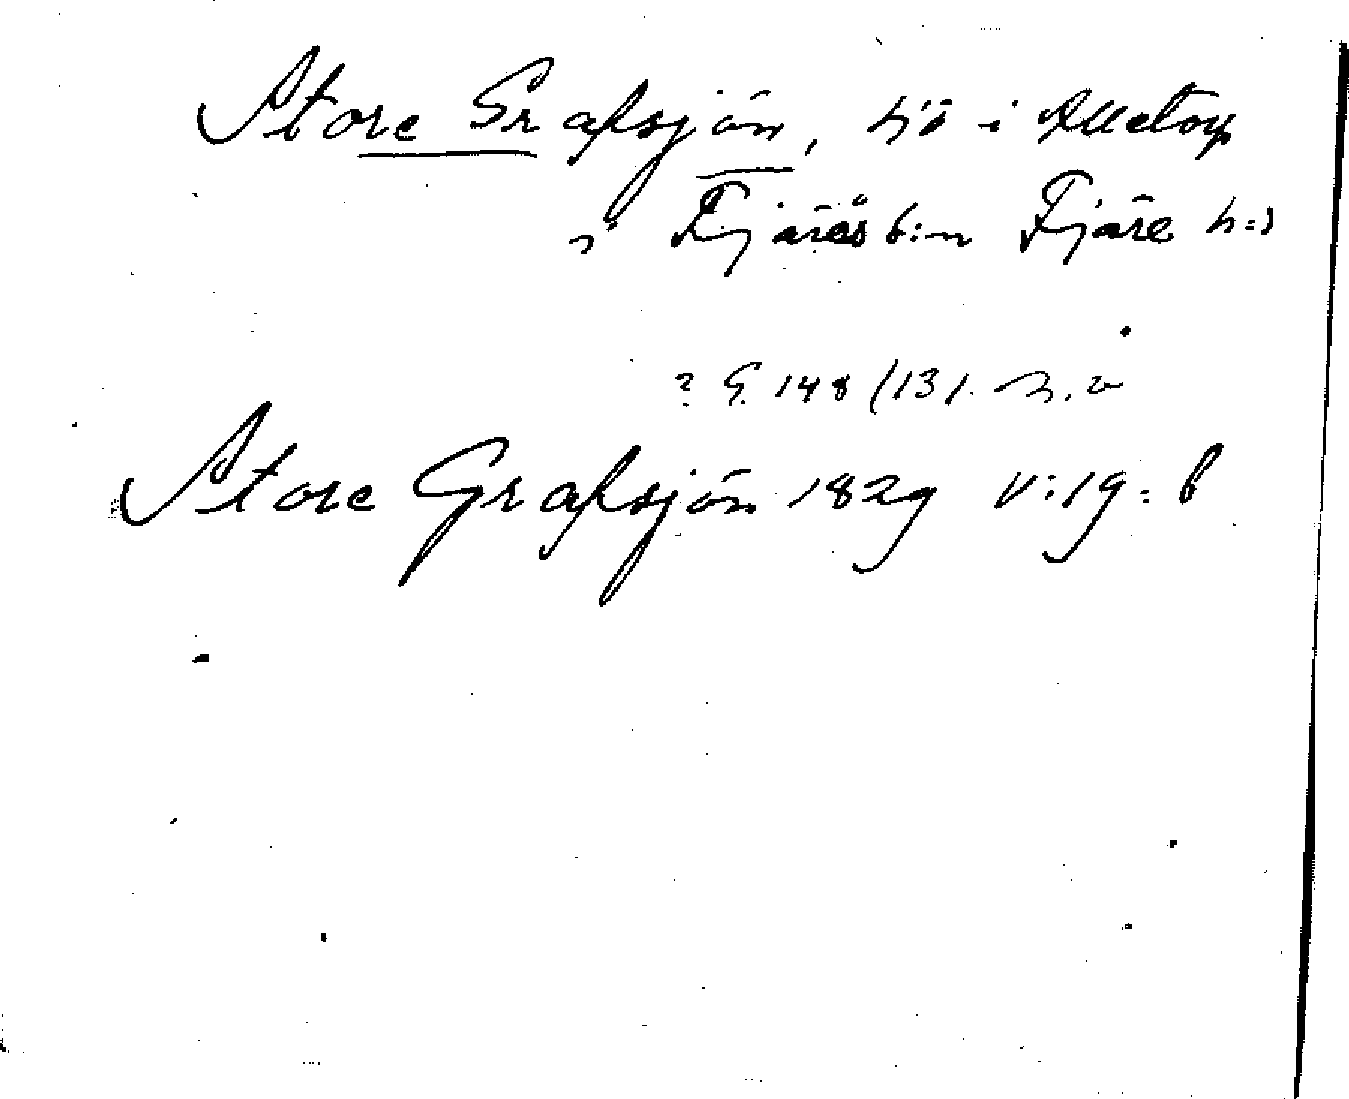 Store Grafsjön, sjö i Alletorp
Fjärås s:n Fjäre h:d
? G. 148 (131.
Store Grafsjön 1829 V:19:6